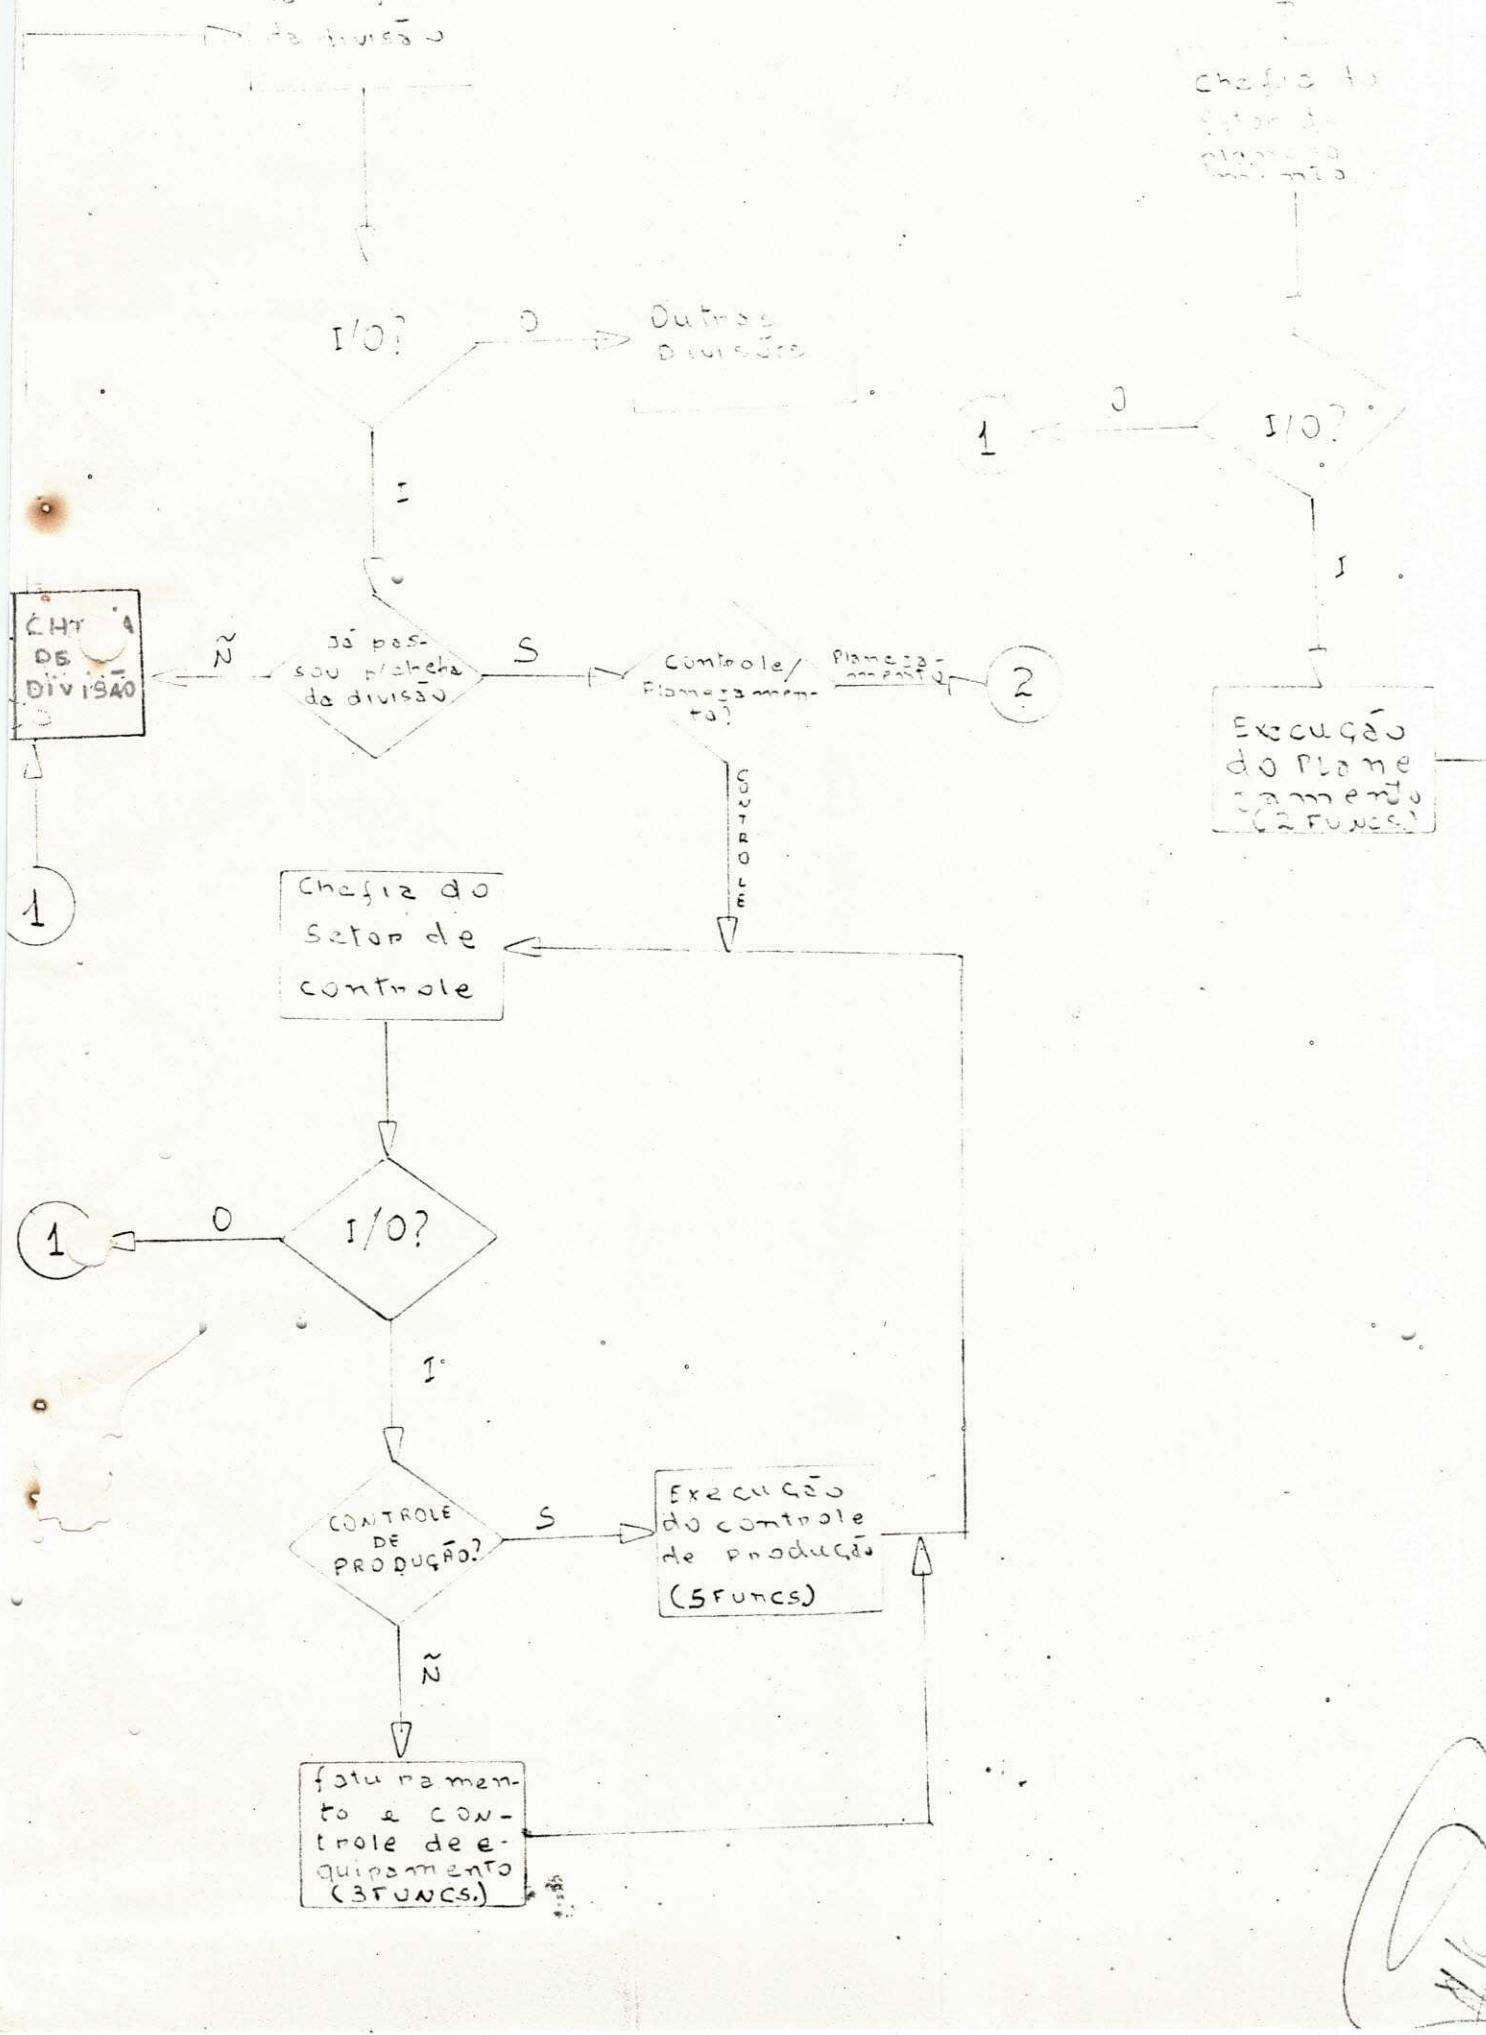 da divisão
Chefia do
Setor de
I/O?
O
Outras
Divisões
O
1
I/O?
I
I
DE
DIVISÃO
Ñ
Já pas-
sou p/chefia
da divisão
S
Controle/
Planejamen-
to?
Planeja-
mento
2
CONTROLE
Execução
do Plane
jamento
(2 FUNCS.)
1
Chefia do
Setor de
controle
1
O
I/O?
I
CONTROLE
DE
PRODUÇÃO?
S
Execução
do controle
de produção
(5 Funcs.)
Ñ
faturamen-
to e CON-
trole de e-
quipamento
(3 FUNCS.)